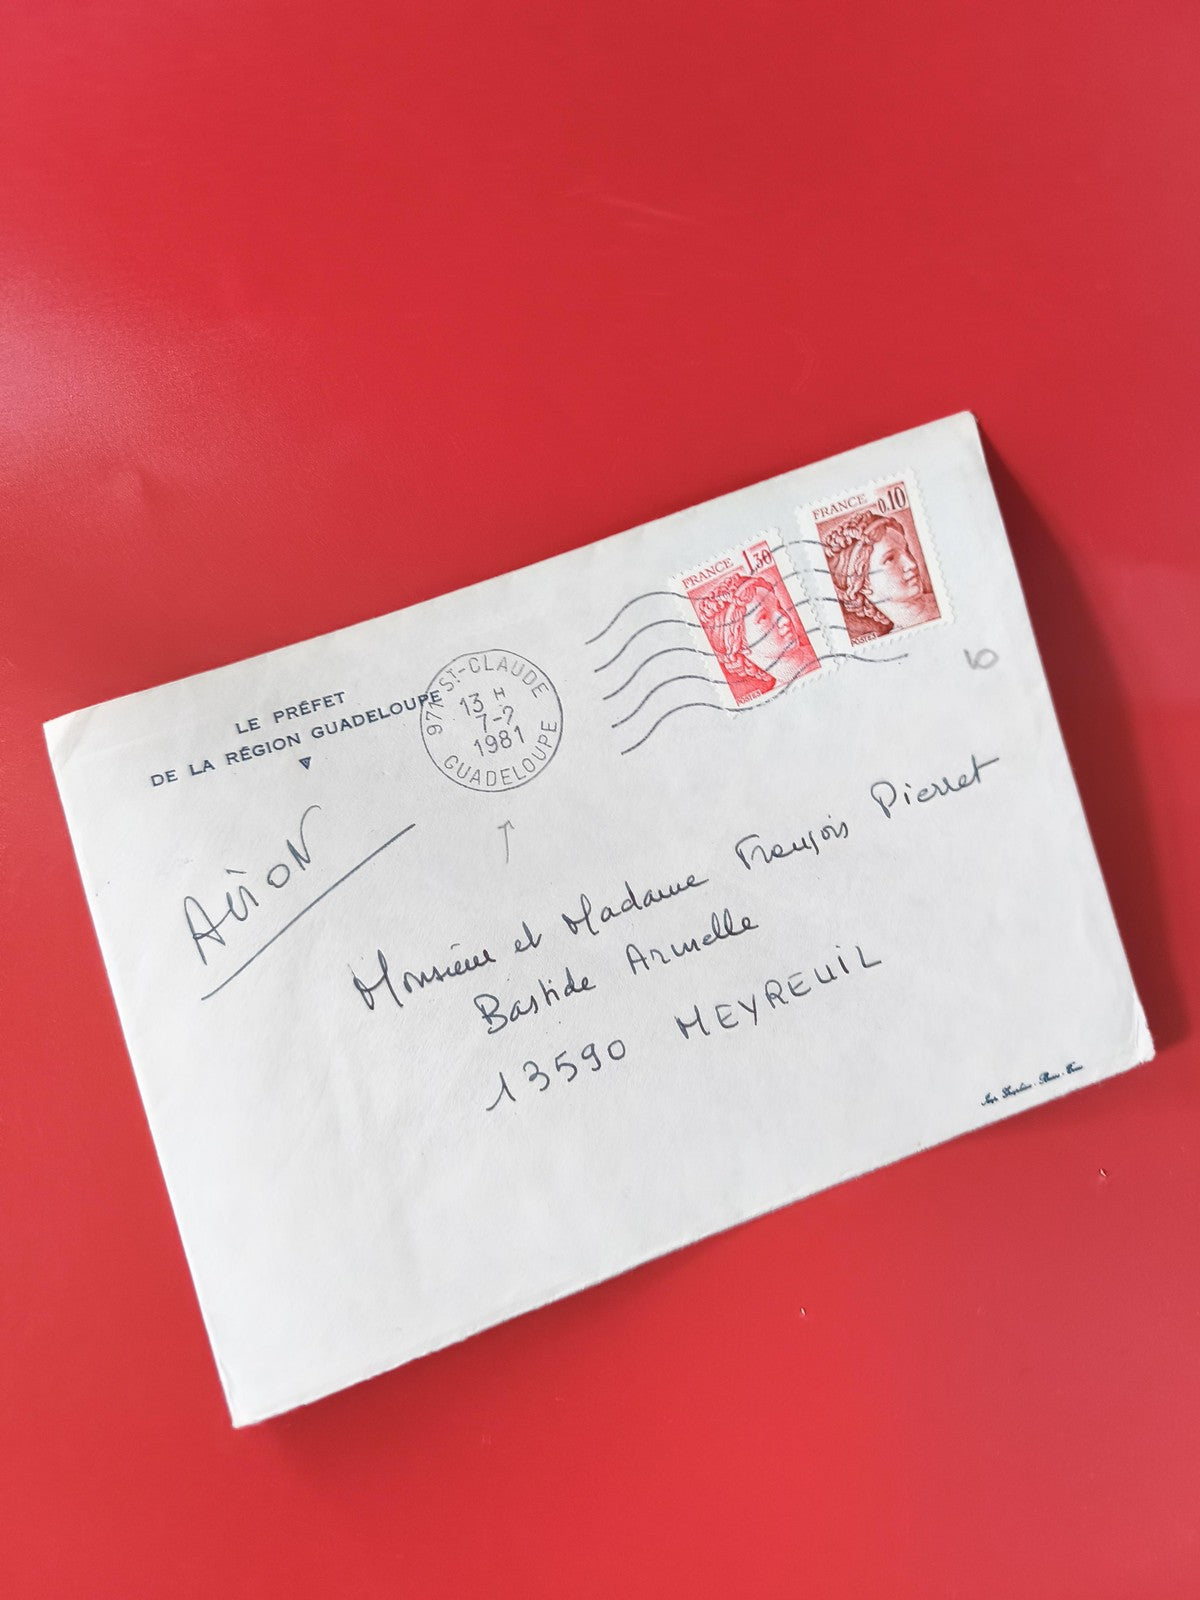 FRANCE 0.10
POSTES
FRANCE 1,30
POSTES
LE PRÉFET
DE LA RÉGION GUADELOUPE
ST-CLAUDE
13 H
7-2
1981
GUADELOUPE
AviON
10
Monsieur et Madame François Pierret
Bastide Armelle
13590 MEYREUIL